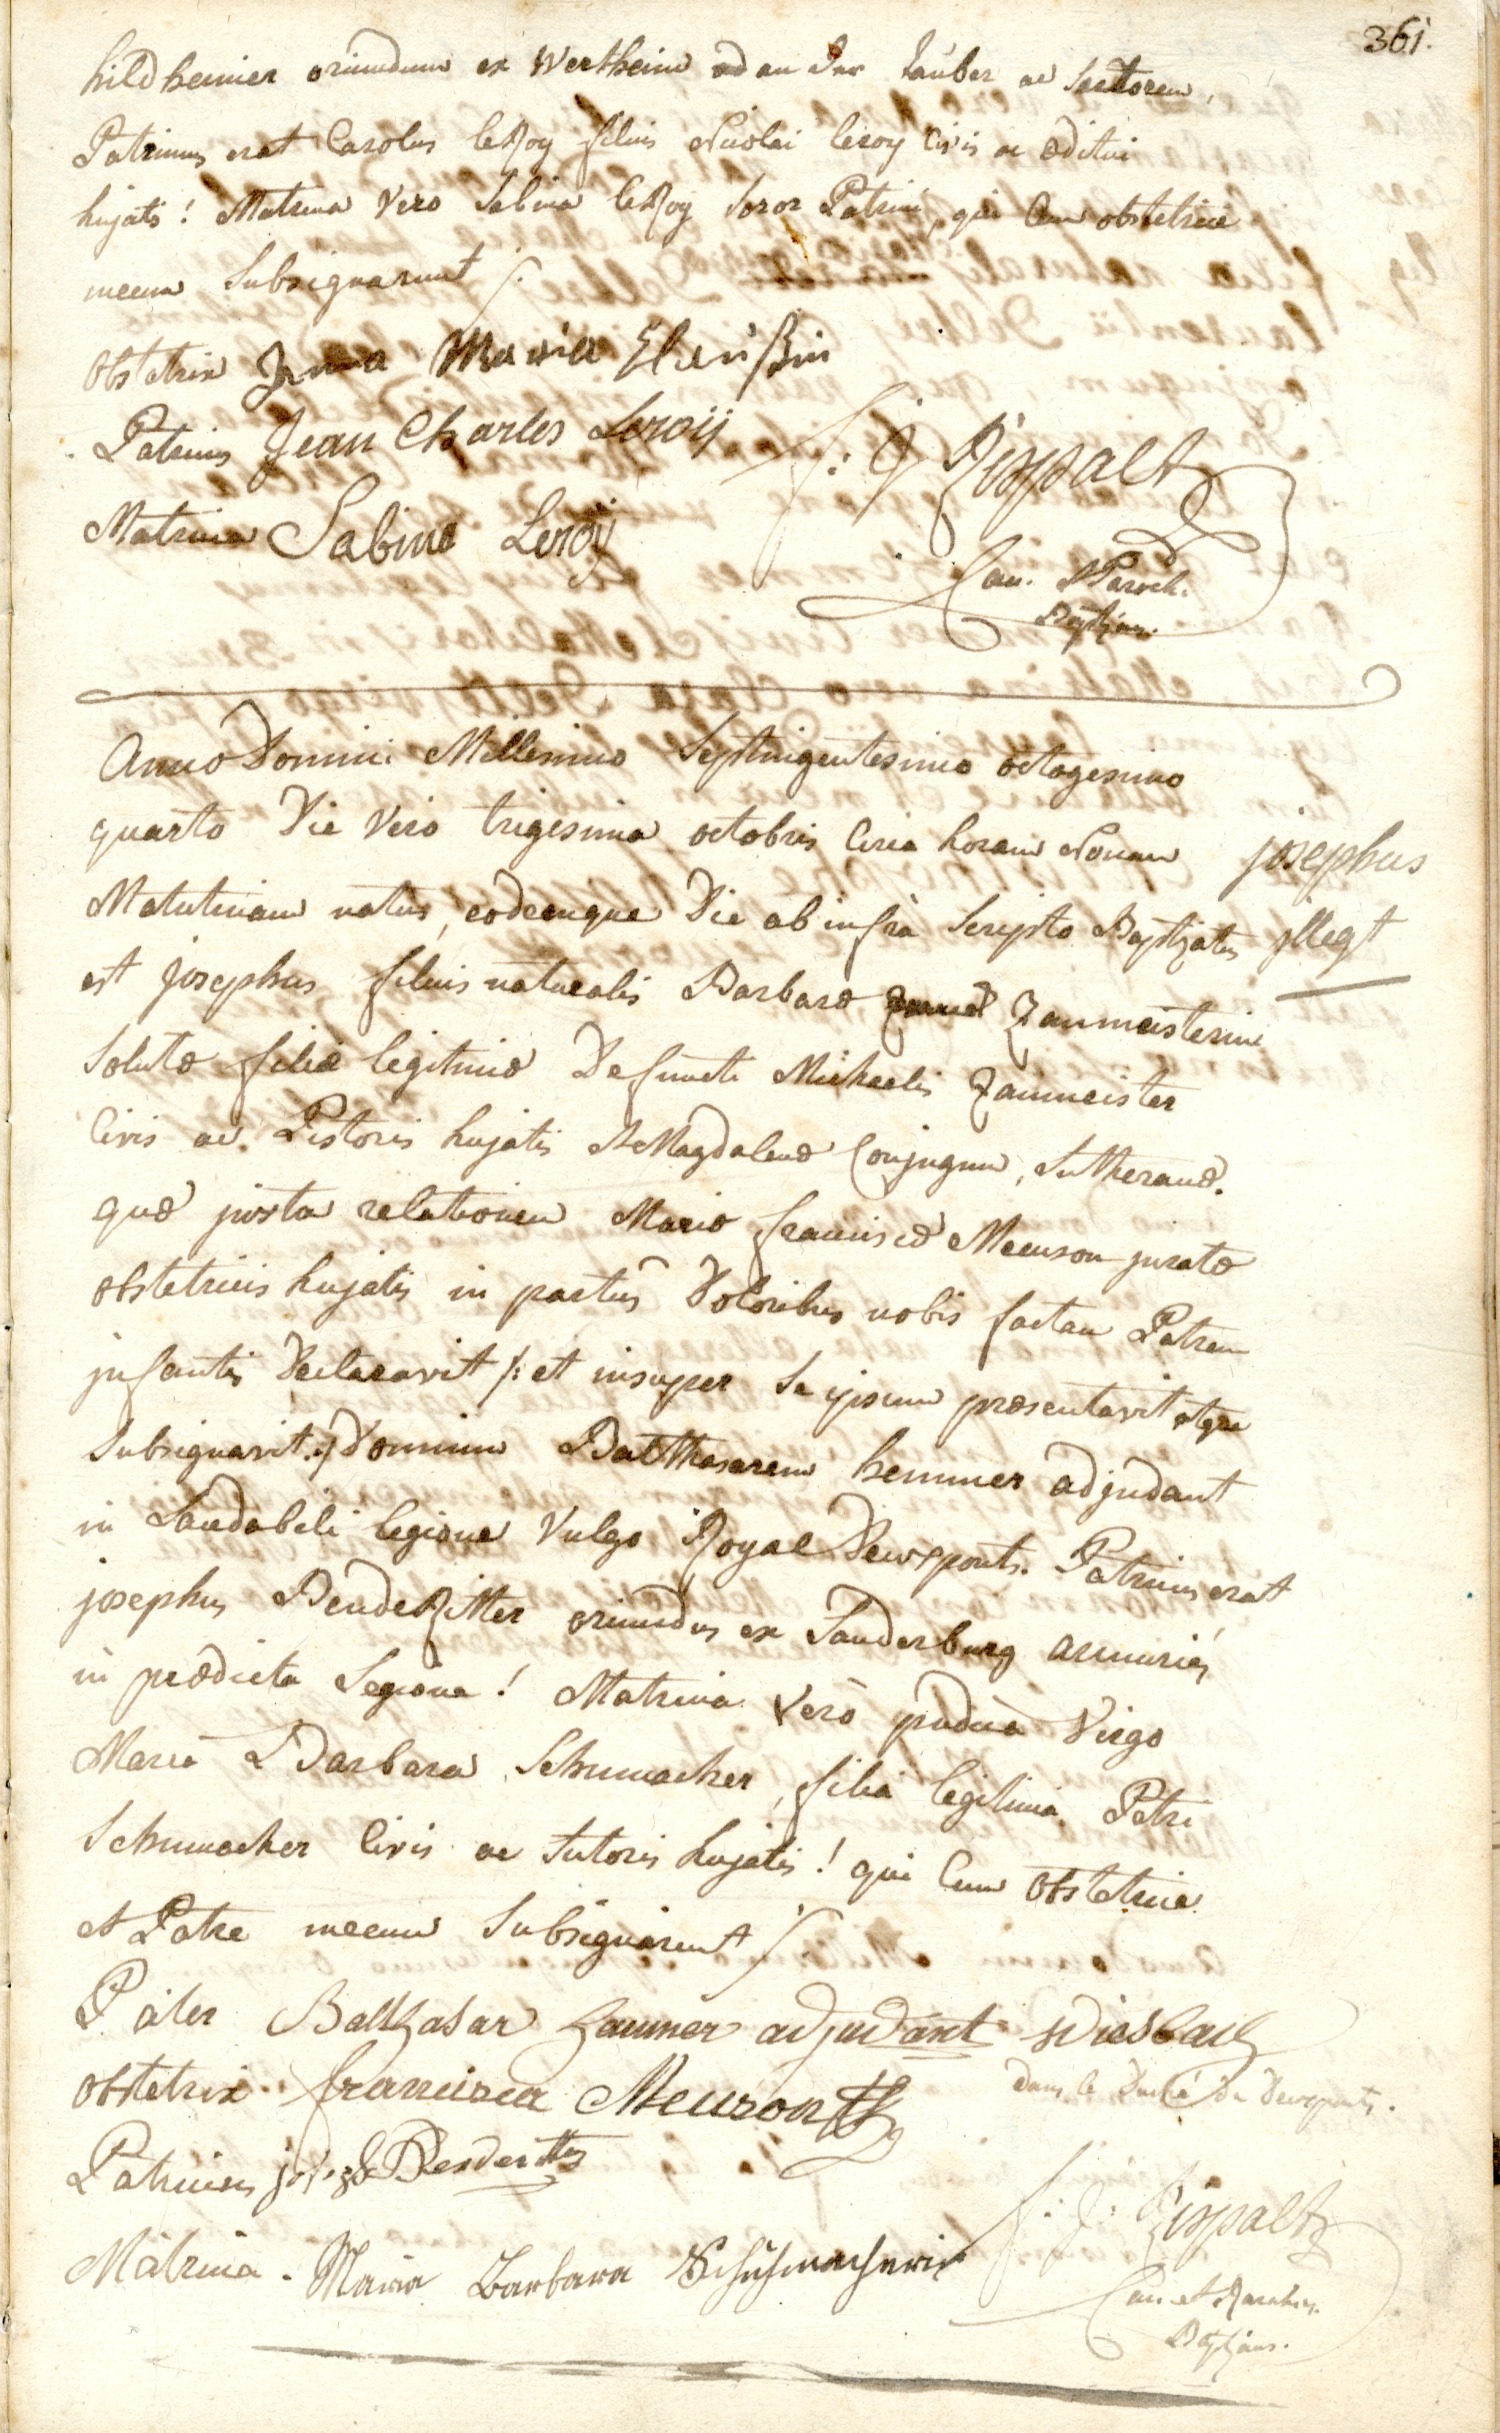 361.
hildheimer oriundum ex Wertheim an der Tauber ac Sartorem,
Patrinus erat Carolus leRoy filius Nicolai leroy Civis ac Æditui
hujatis! Matrina Vero Sabina leRoy Soror Patrini, qui Cum obstetrice
mecum Subsignarunt
Obstetrix Anna Maria
Patrinus Jean Charles Leroÿ
Matrina Sabine Leroÿ
f: J Rispalt
Can. et Paroch.
Baptizans.
Anno Domini Millesimo Septuigentesimo octogesimo
quarto Die Vero trigesima octobris Circa horam Nonam
josephus
Matutinam natus, eodemque Die ab infrà Scripto Baptizatus
jllegt
est josephus filius naturalis Barbaræ Zanmeisterin
Solutæ filiæ legitimæ Defuncti Michaelis Zanmeister
Civis ac Pistoris hujatis et Magdalenæ Conjugum, Lutheranæ.
quæ juxta relationem Mariæ franciscæ Meuson juratæ
obstetricis hujatis in partus Doloribus nobis factam Patrem
jnfantis Declaravit /: et insuper Se ipsum præsentavit atque
Subsignavit :/ Dominum Balthasarem hemmer adjudant
in Laudabili legione Vulgo Royal Deuxponts. Patrinus erat
josephus BendeRitter oriundus ex Lauderburg armuriés
in prædicta Legione! Matrina Verò pudica Virgo
Maria Barbara Schumacher, filia legitima Petri
Schumacher Civis ac Sutoris hujatis! qui Cum Obstetrice
et Patre mecum Subsignarunt
Pater Balthasar Hammer adjudant Wiesbach
dans le Duché de Deuxponts.
obstetrix francisca Meuron
Patrinus joseph Benderitter
Matrina. Maria Barbara Schuhmacherin
f: J: Rispalt
Can et Parochus.
Baptizans.